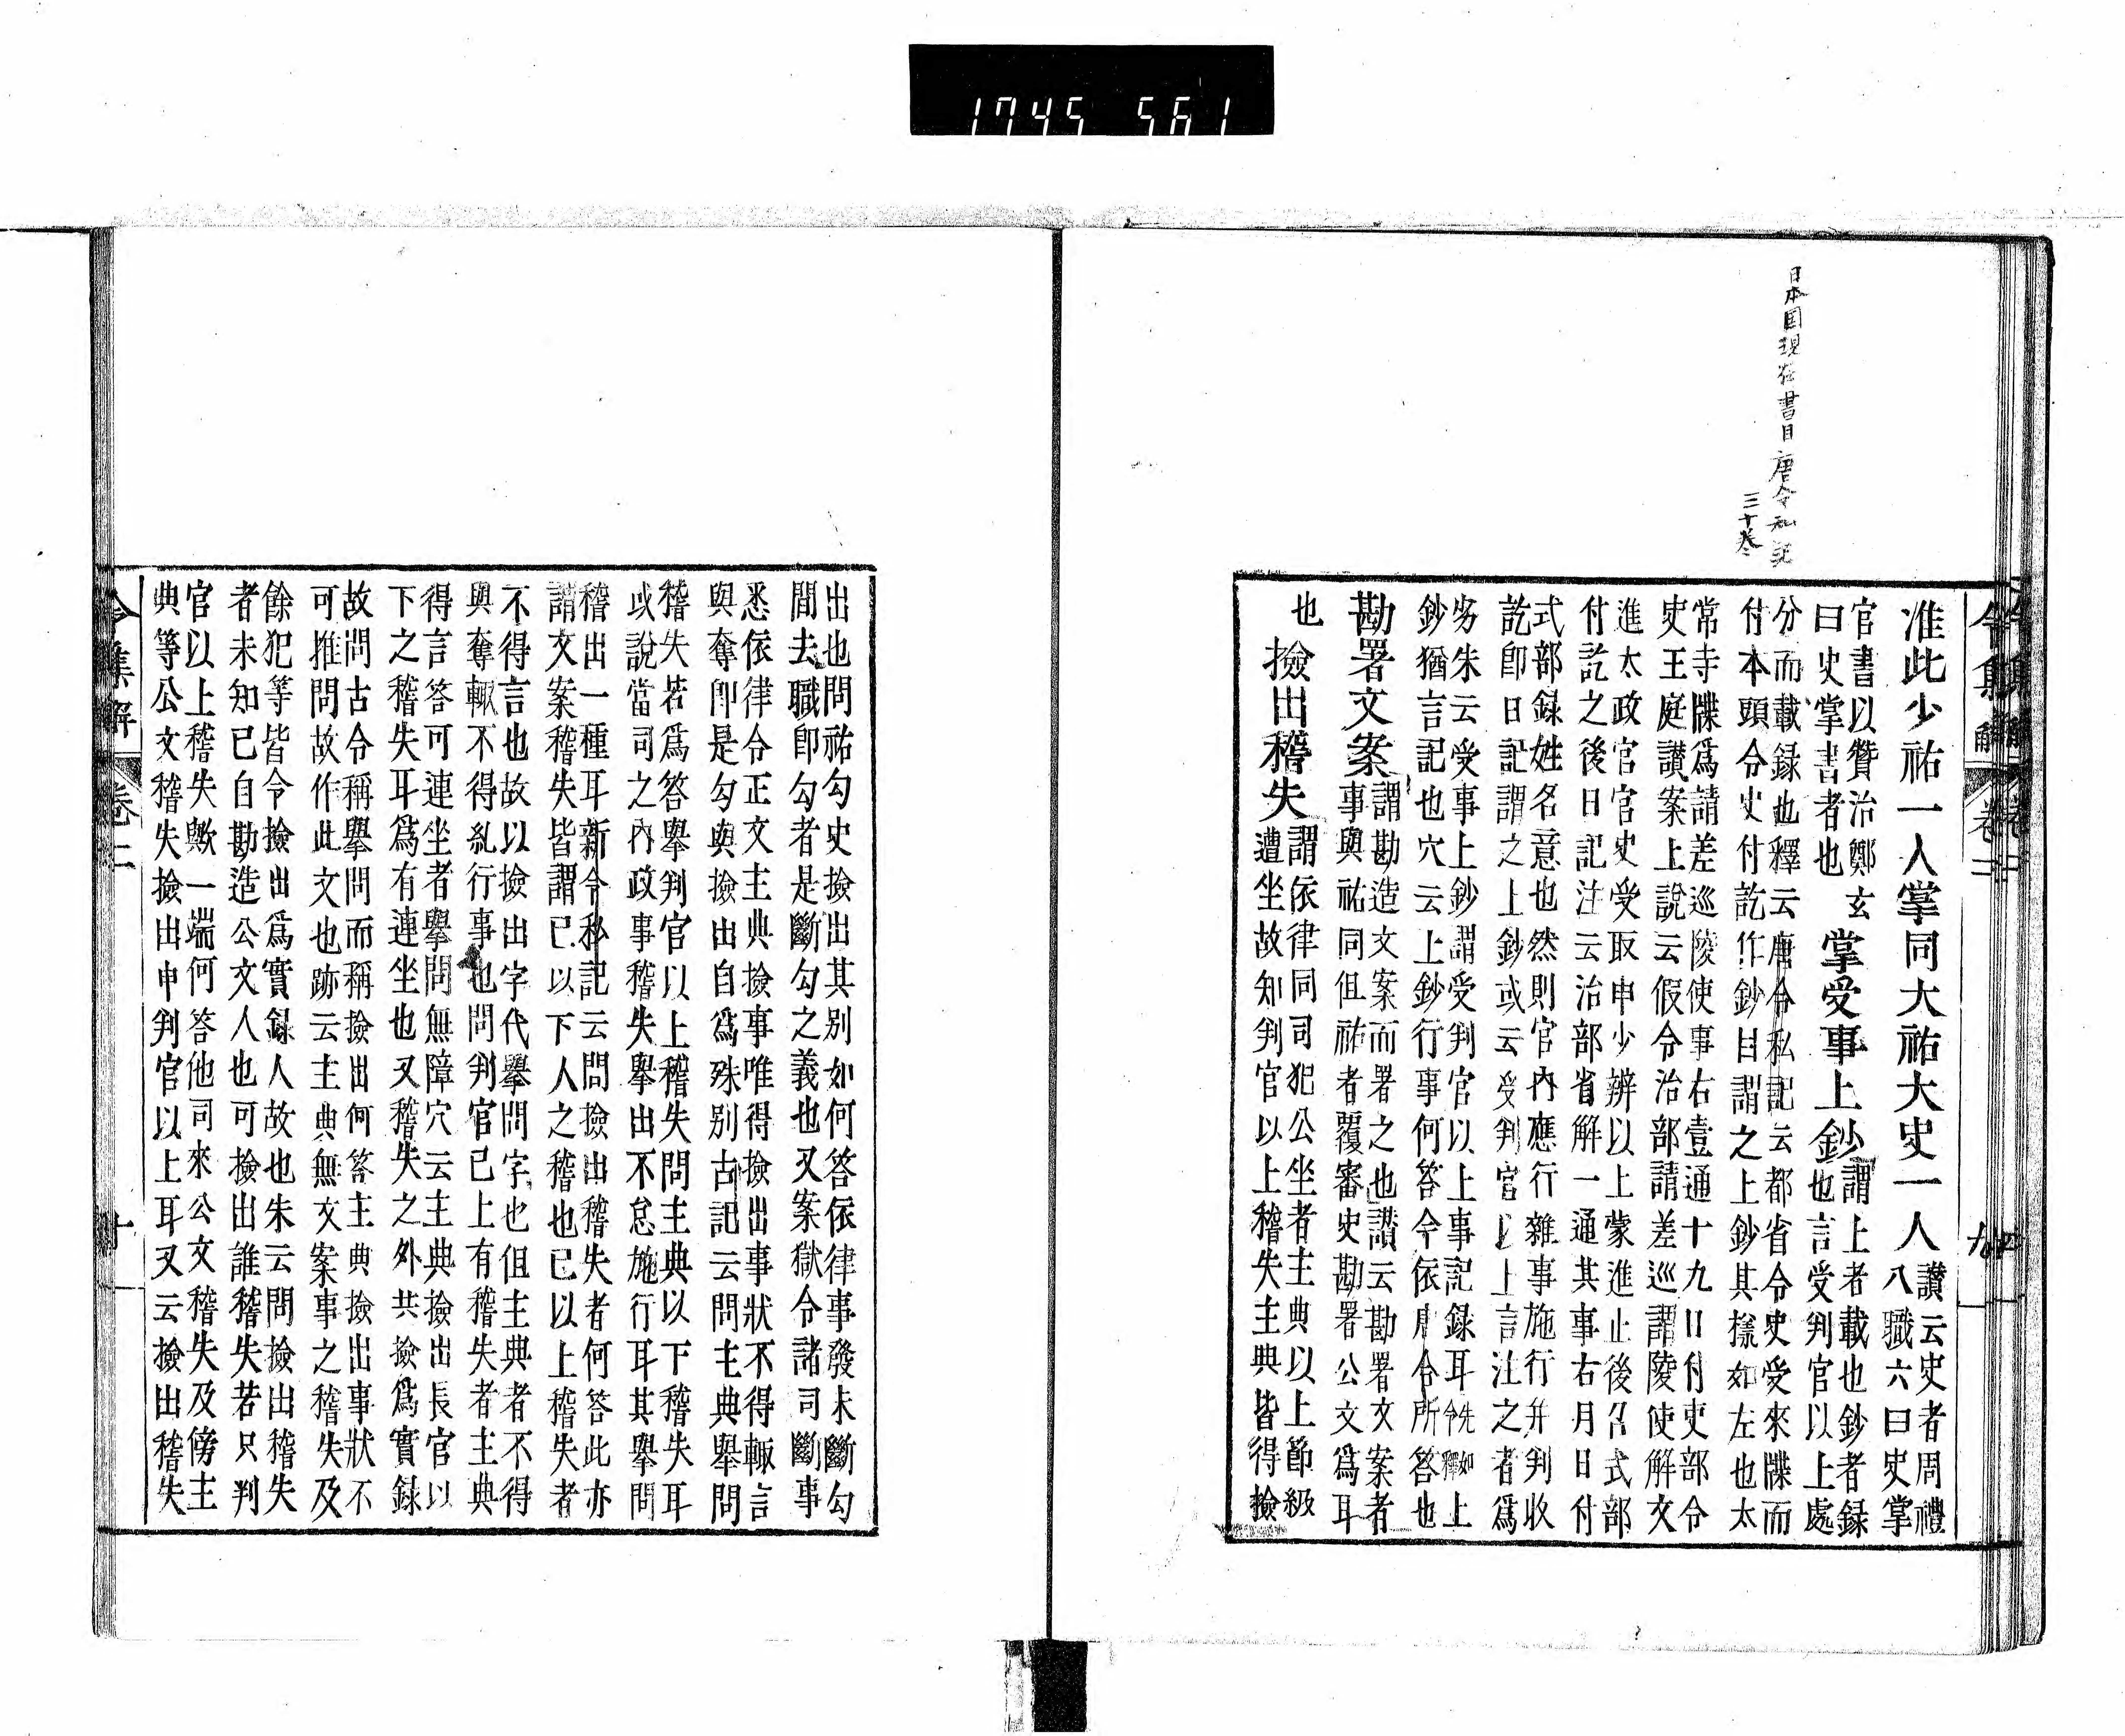 1745 561
日本国現在書目唐令私記
三十卷
令集解 卷二
准此少祐一人掌同大祐大史一人
讃云史者周禮
八職六曰史掌
官書以贊治鄭玄
曰史掌書者也
掌受事上鈔
謂上者載也鈔者録
也言受判官以上處
分而載録也釋云唐令私記云都省令史受來牒而
付本頭令史付訖作鈔目謂之上鈔其樣如左也太
常寺牒爲請差巡陵使事右壹通十九日付吏部令
史王庭讃案上説云假令治部請差巡謂陵使解文
進太政官官史受取申少辨以上蒙進止後召式部
付訖之後日記注云治部省解一通其事右月日付
式部録姓名意也然則官內應行雜事施行并判收
訖卽日記謂之上鈔或云受判官以上言注之者爲
労朱云受事上鈔謂受判官以上事記録耳先如上
令釋
鈔猶言記也穴云上鈔行事何答今依唐令所答也
勘署文案
謂勘造文案而署之也讃云勘署文案者
事與祐同但祐者覆審史勘署公文爲耳
也
撿出稽失
謂依律同司犯公坐者主典以上節級
遭坐故知判官以上稽失主典皆得撿
出也問祐勾史撿出其別如何答依律事發未斷勾
間去職卽勾者是斷勾之義也又案獄令諸司斷事
悉依律令正文主典撿事唯得撿出事狀不得輙言
與奪卽是勾與撿出自爲殊別古記云問主典舉問
稽失若爲答舉判官以上稽失問主典以下稽失耳
或説當司之內政事稽失舉出不怠施行耳其舉問
稽出一種耳新令私記云問撿出稽失者何答此亦
謂文案稽失皆謂已以下人之稽也已以上稽失者
不得言也故以撿出字代舉問字也但主典者不得
與奪輙不得糺行事也問判官已上有稽失者主典
得言答可連坐者舉問無障穴云主典撿出長官以
下之稽失耳爲有連坐也又稽失之外共撿爲實録
故問古令稱舉問而稱撿出何答主典撿出事狀不
可推問故作此文也跡云主典無文案事之稽失及
餘犯等皆令撿出爲實録人故也朱云問撿出稽失
者未知已自勘造公文人也可撿出誰稽失若只判
官以上稽失歟一端何答他司來公文稽失及傍主
典等公文稽失撿出申判官以上耳又云撿出稽失
令集解 卷二 十